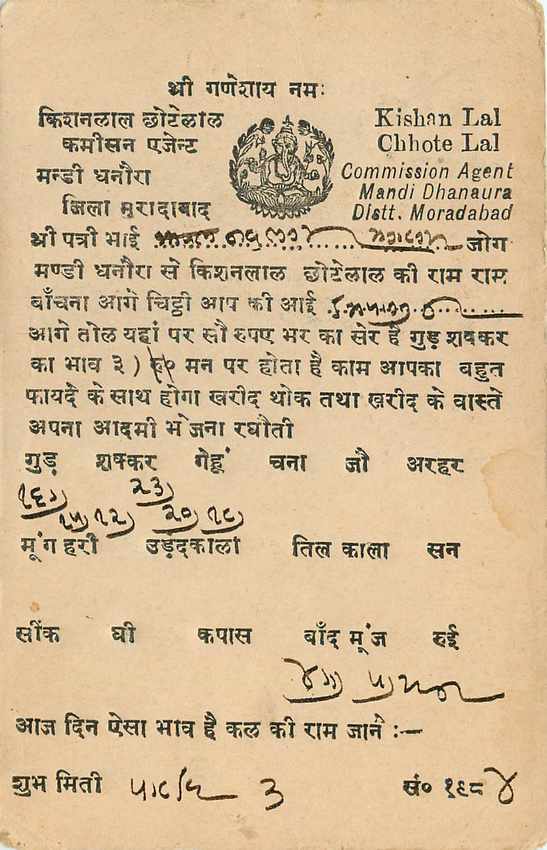 श्री गणेशाय नमः
किशनलाल छोटेलाल
कमीसन एजेन्ट
मन्डी धनौरा
जिला मुरादाबाद
Kishan Lal
Chhote Lal
Commission Agent
Mandi Dhanaura
Distt. Moradabad
श्री पत्री भाई जोग
मण्डी धनौरा से किशनलाल छोटेलाल की राम राम
बाँचना आगे चिट्ठी आप की आई
आगे तोल यहां पर सौ रुपए भर का सेर है गुड़ शक्कर
का भाव ३) मन पर होता है काम आपका बहुत
फायदे के साथ होगा खरीद थोक तथा खरीद के वास्ते
अपना आदमी भेजना रघौती
गुड़ शक्कर गेहूं चना जौ अरहर
२३)
मूंग हरी उड़दकाला तिल काला सन
सींक घी कपास बाँद मूंज रुई
आज दिन ऐसा भाव है कल की राम जाने :—
शुभ मिती ३ सं० १९८४